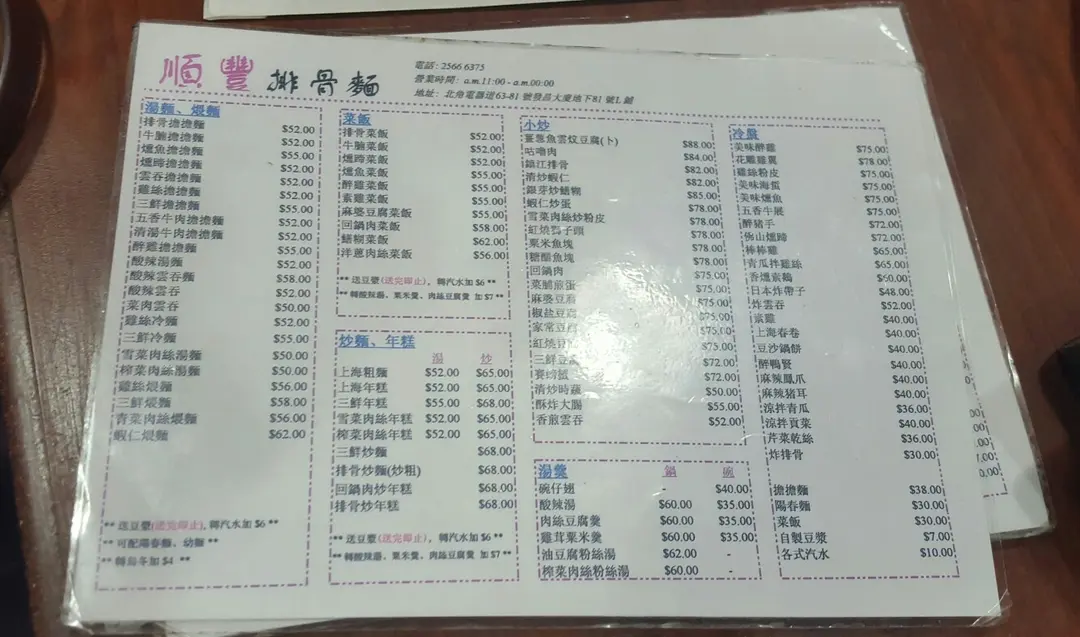 順豐排骨麵
電話: 2566 6375
營業時間: a.m.11:00 - a.m.00:00
地址: 北角電器道63-81 號發昌大廈地下81 號L 鋪
湯麵、煨麵
排骨擔擔麵 $52.00
牛腩擔擔麵 $52.00
燻魚擔擔麵 $55.00
燻蹄擔擔麵 $52.00
雲吞擔擔麵 $52.00
雞絲擔擔麵 $52.00
三鮮擔擔麵 $55.00
五香牛肉擔擔麵 $52.00
清湯牛肉擔擔麵 $52.00
醉雞擔擔麵 $55.00
酸辣湯麵 $52.00
酸辣雲吞麵 $58.00
酸辣雲吞 $52.00
菜肉雲吞 $50.00
雞絲冷麵 $52.00
三鮮冷麵 $55.00
雪菜肉絲湯麵 $50.00
榨菜肉絲湯麵 $50.00
雞絲煨麵 $56.00
三鮮煨麵 $58.00
青菜肉絲煨麵 $56.00
蝦仁煨麵 $62.00
** 送豆漿(送完即止), 轉汽水加 $6 **
** 可配陽春麵、幼麵 **
** 轉烏冬加 $4 **
菜飯
排骨菜飯 $52.00
牛腩菜飯 $52.00
燻蹄菜飯 $52.00
燻魚菜飯 $55.00
醉雞菜飯 $55.00
素雞菜飯 $55.00
麻婆豆腐菜飯 $55.00
回鍋肉菜飯 $58.00
鱔糊菜飯 $62.00
洋蔥肉絲菜飯 $56.00
** 送豆漿(送完即止), 轉汽水加 $6 **
** 轉酸辣湯、粟米羹、肉絲豆腐羹 加 $7 **
炒麵、年糕
湯 炒
上海粗麵 $52.00 $65.00
上海年糕 $52.00 $65.00
三鮮年糕 $55.00 $68.00
雪菜肉絲年糕 $52.00 $65.00
榨菜肉絲年糕 $52.00 $65.00
三鮮炒麵 $68.00
排骨炒麵(炒粗) $68.00
回鍋肉炒年糕 $68.00
排骨炒年糕 $68.00
** 送豆漿(送完即止), 轉汽水加 $6 **
** 轉酸辣湯、粟米羹、肉絲豆腐羹 加 $7 **
小炒
薑蔥魚雲炆豆腐(卜) $88.00
咕嚕肉 $84.00
鎮江排骨 $82.00
清炒蝦仁 $82.00
銀芽炒鱔糊 $85.00
蝦仁炒蛋 $78.00
雪菜肉絲炒粉皮 $78.00
紅燒獅子頭 $78.00
粟米魚塊 $78.00
糖醋魚塊 $78.00
回鍋肉 $75.00
菜脯煎蛋 $75.00
麻婆豆腐 $75.00
椒鹽豆腐 $75.00
家常豆腐 $75.00
紅燒豆腐 $75.00
三鮮豆腐 $72.00
賽螃蟹 $72.00
清炒時蔬 $50.00
酥炸大腸 $55.00
香煎雲吞 $52.00
湯羹 鍋 碗
碗仔翅 - $40.00
酸辣湯 $60.00 $35.00
肉絲豆腐羹 $60.00 $35.00
雞茸粟米羹 $60.00 $35.00
油豆腐粉絲湯 $62.00 -
榨菜肉絲粉絲湯 $60.00 -
冷盤
美味醉雞 $75.00
花雕雞翼 $78.00
雞絲粉皮 $75.00
美味海蜇 $75.00
美味燻魚 $75.00
五香牛展 $75.00
醉豬手 $72.00
佛山燻蹄 $72.00
棒棒雞 $65.00
青瓜拌雞絲 $65.00
香燻素鵝 $60.00
日本炸帶子 $48.00
炸雲吞 $52.00
素雞 $40.00
上海春卷 $40.00
豆沙鍋餅 $40.00
醉鴨腎 $40.00
麻辣鳳爪 $40.00
麻辣豬耳 $40.00
涼拌青瓜 $36.00
涼拌頁菜 $40.00
芹菜乾絲 $36.00
炸排骨 $30.00
擔擔麵 $38.00
陽春麵 $30.00
菜飯 $30.00
自製豆漿 $7.00
各式汽水 $10.00